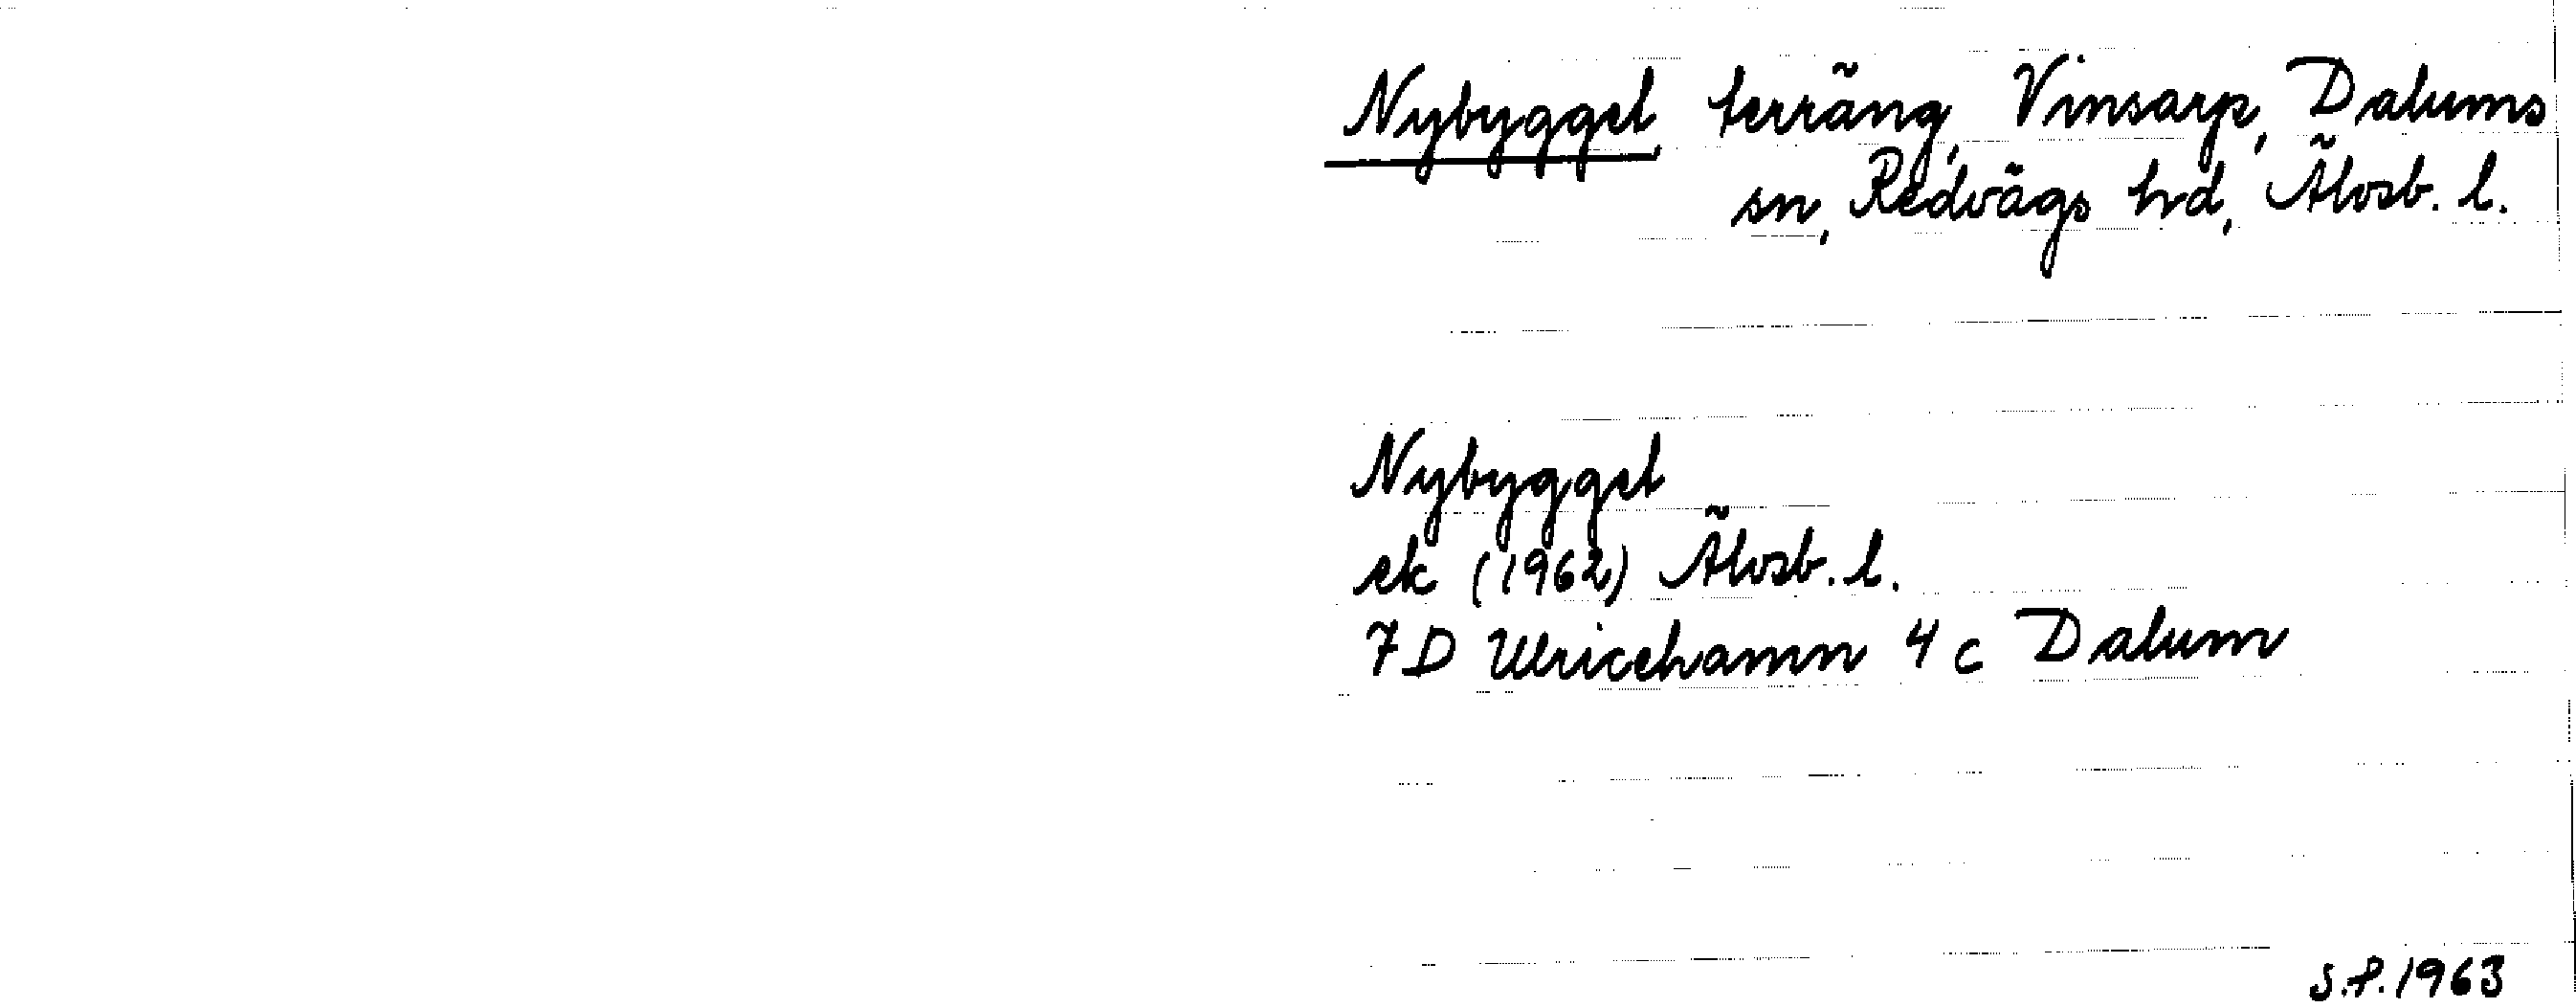 Nybygget, terräng, Vinsarp, Dalums
sn, Redvägs hd, Älvsb. l.
Nybygget
ek (1962) Älvsb. l.
7D Ulricehamn 4c Dalum
S.P. 1963